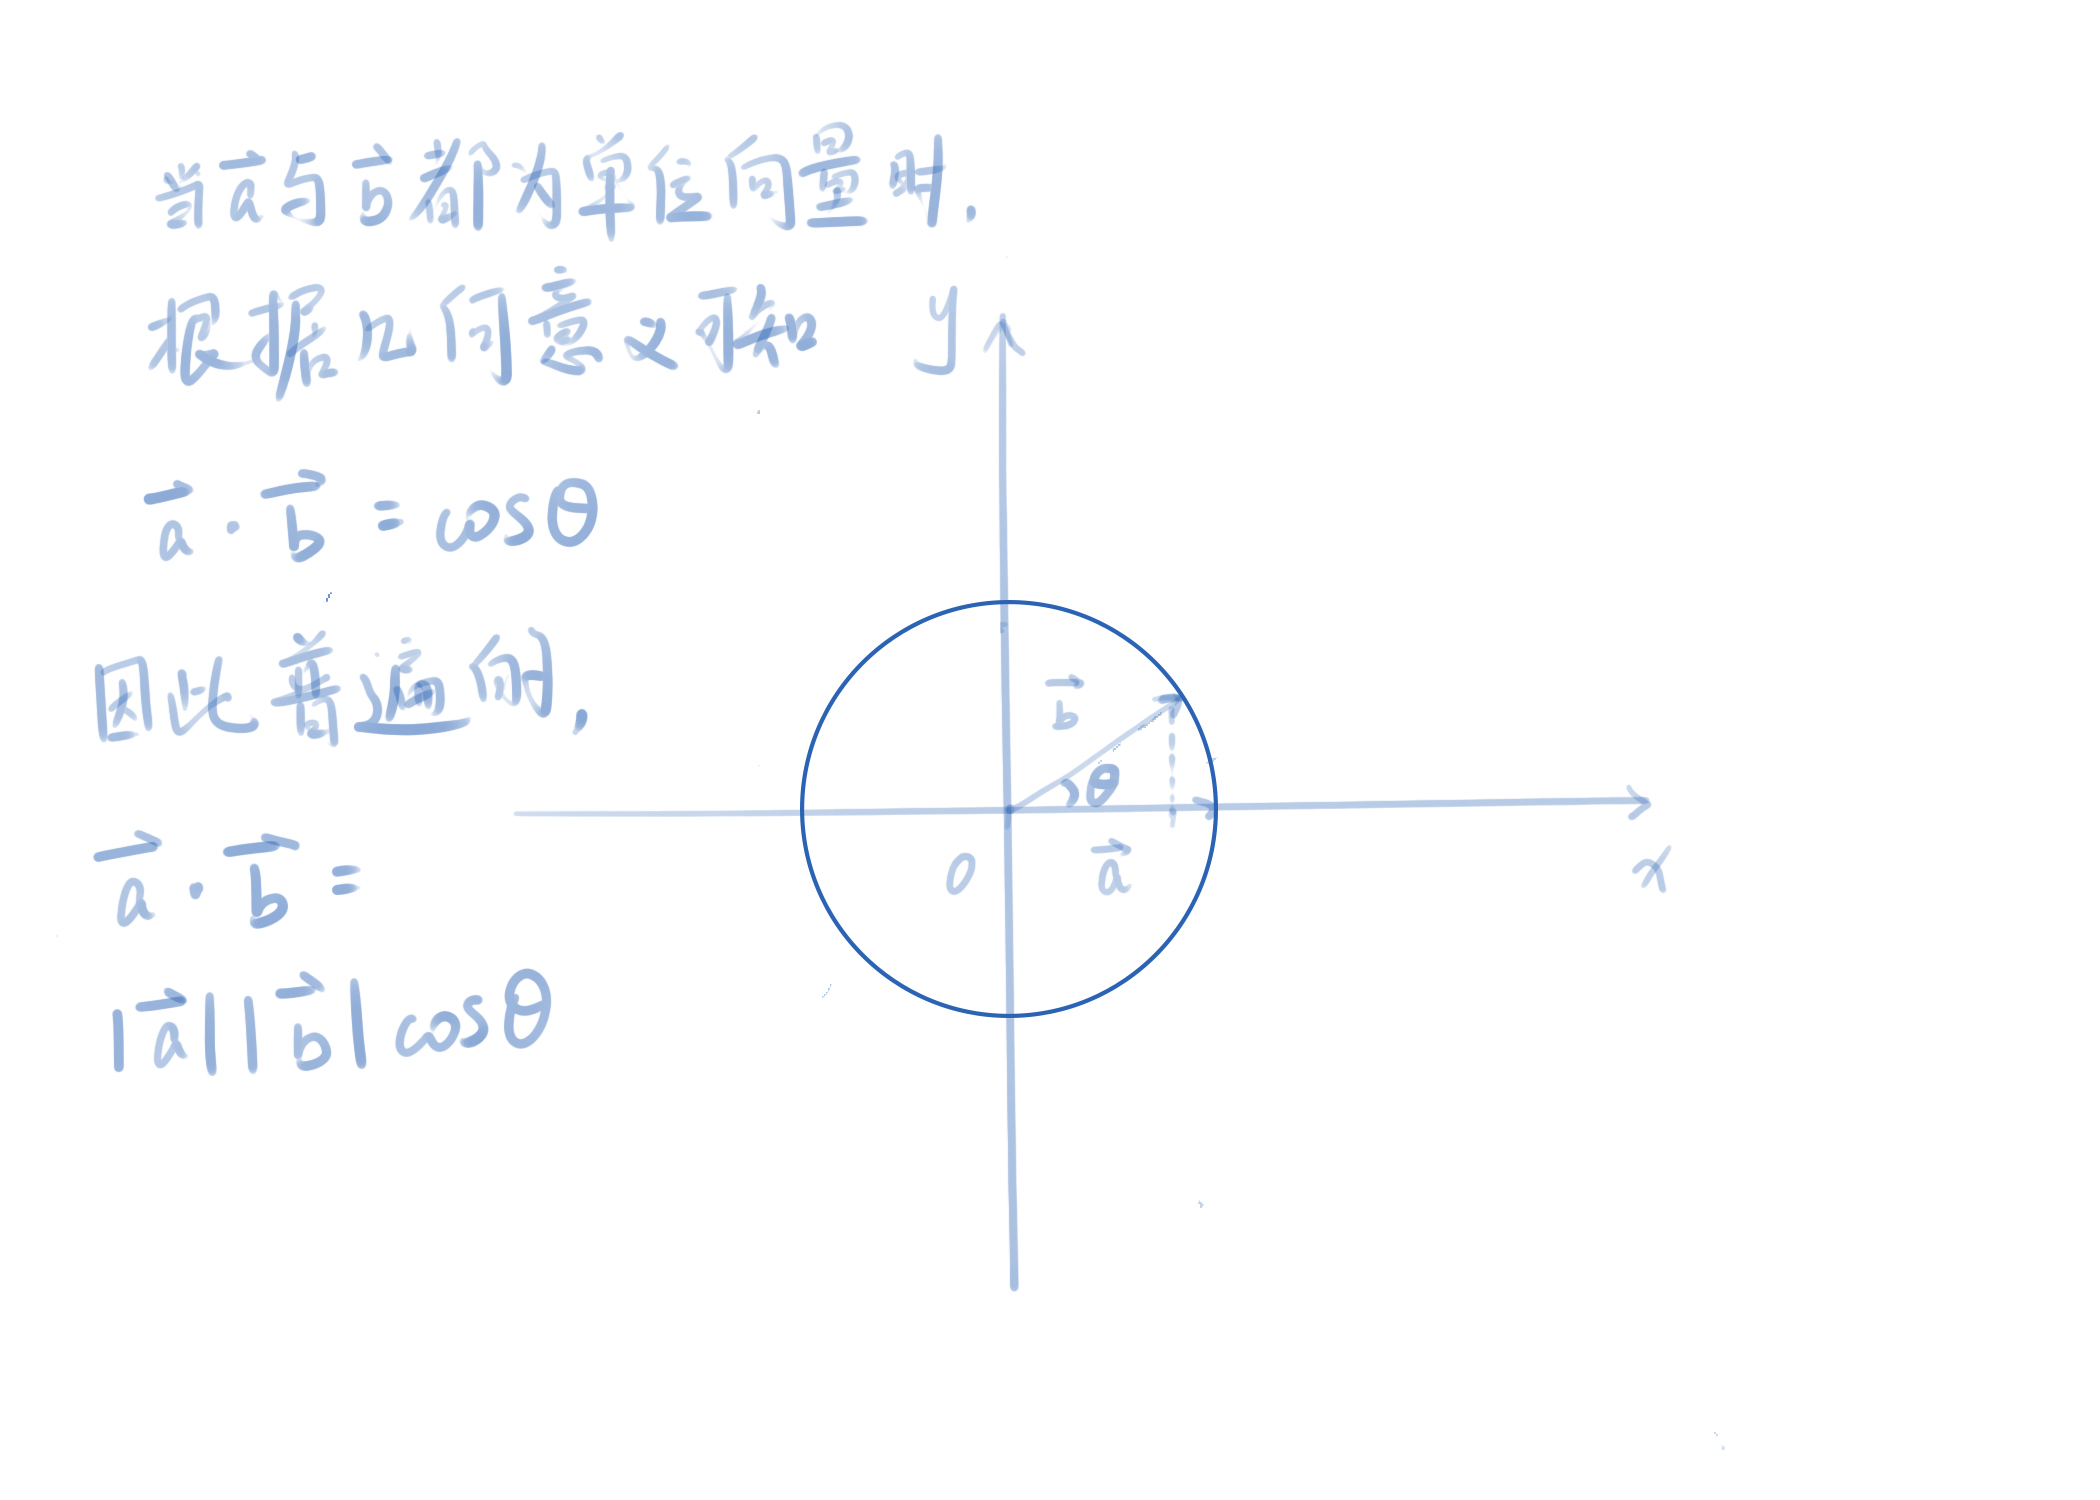 当a⃗与b⃗都为单位向量时.
根据几何意义可知
a⃗·b⃗=cosθ
因此普遍的,
a⃗·b⃗=
|a⃗||b⃗|cosθ
y
b⃗
θ
O
a⃗
x